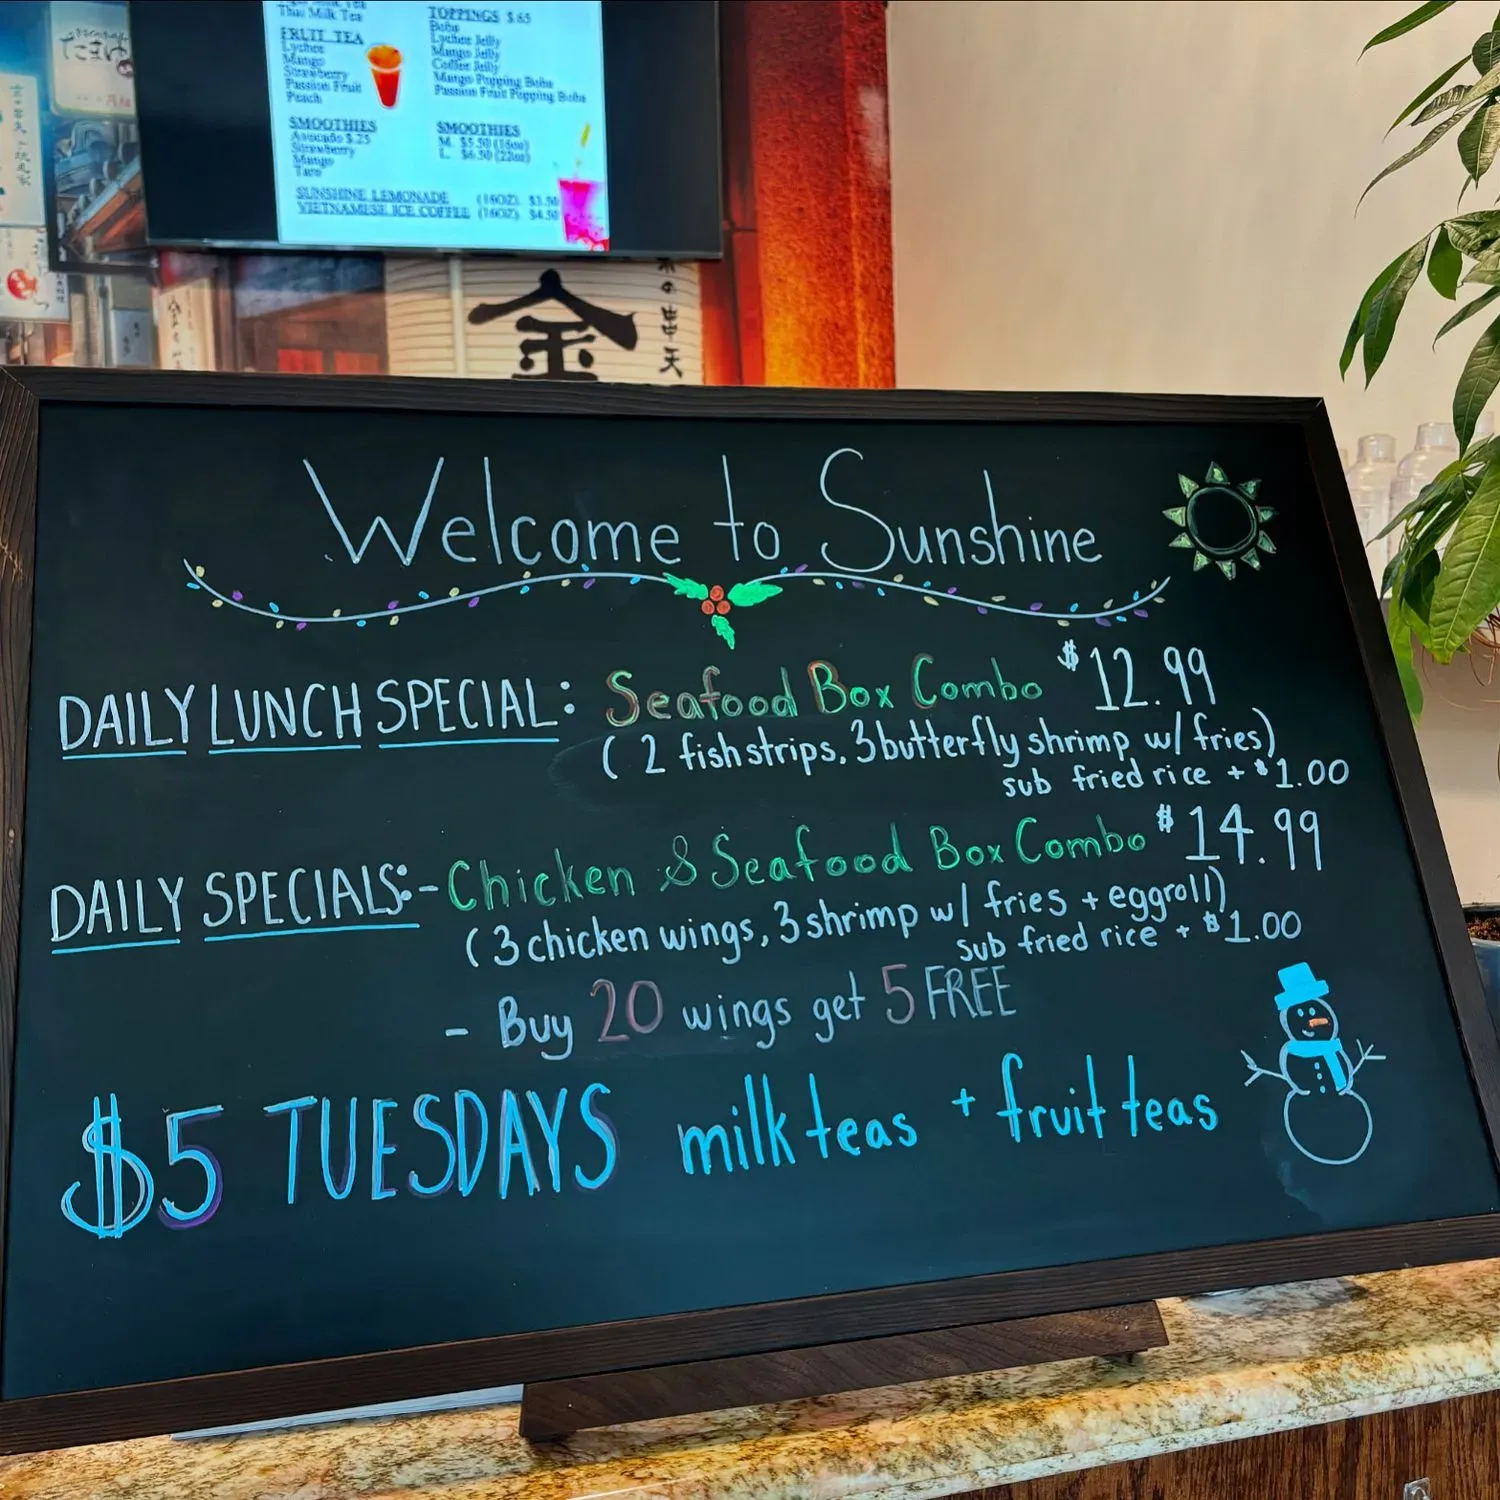 Thai Milk Tea
FRUIT TEA
Lychee
Mango
Strawberry
Passion Fruit
Peach
TOPPINGS $.65
Boba
Lychee Jelly
Mango Jelly
Coffee Jelly
Mango Popping Boba
Passion Fruit Popping Boba
SMOOTHIES
Avocado $.25
Strawberry
Mango
Taro
SMOOTHIES
M. $5.50 (16oz)
L. $6.50 (22oz)
SUNSHINE LEMONADE (16OZ) $3.50
VIETNAMESE ICE COFFEE (16OZ) $4.50
金
の串天
Welcome to Sunshine
DAILY LUNCH SPECIAL: Seafood Box Combo $12.99
(2 fish strips, 3 butterfly shrimp w/ fries)
sub fried rice + $1.00
DAILY SPECIALS: - Chicken & Seafood Box Combo $14.99
(3 chicken wings, 3 shrimp w/ fries + eggroll)
sub fried rice + $1.00
- Buy 20 wings get 5 FREE
$5 TUESDAYS milk teas + fruit teas